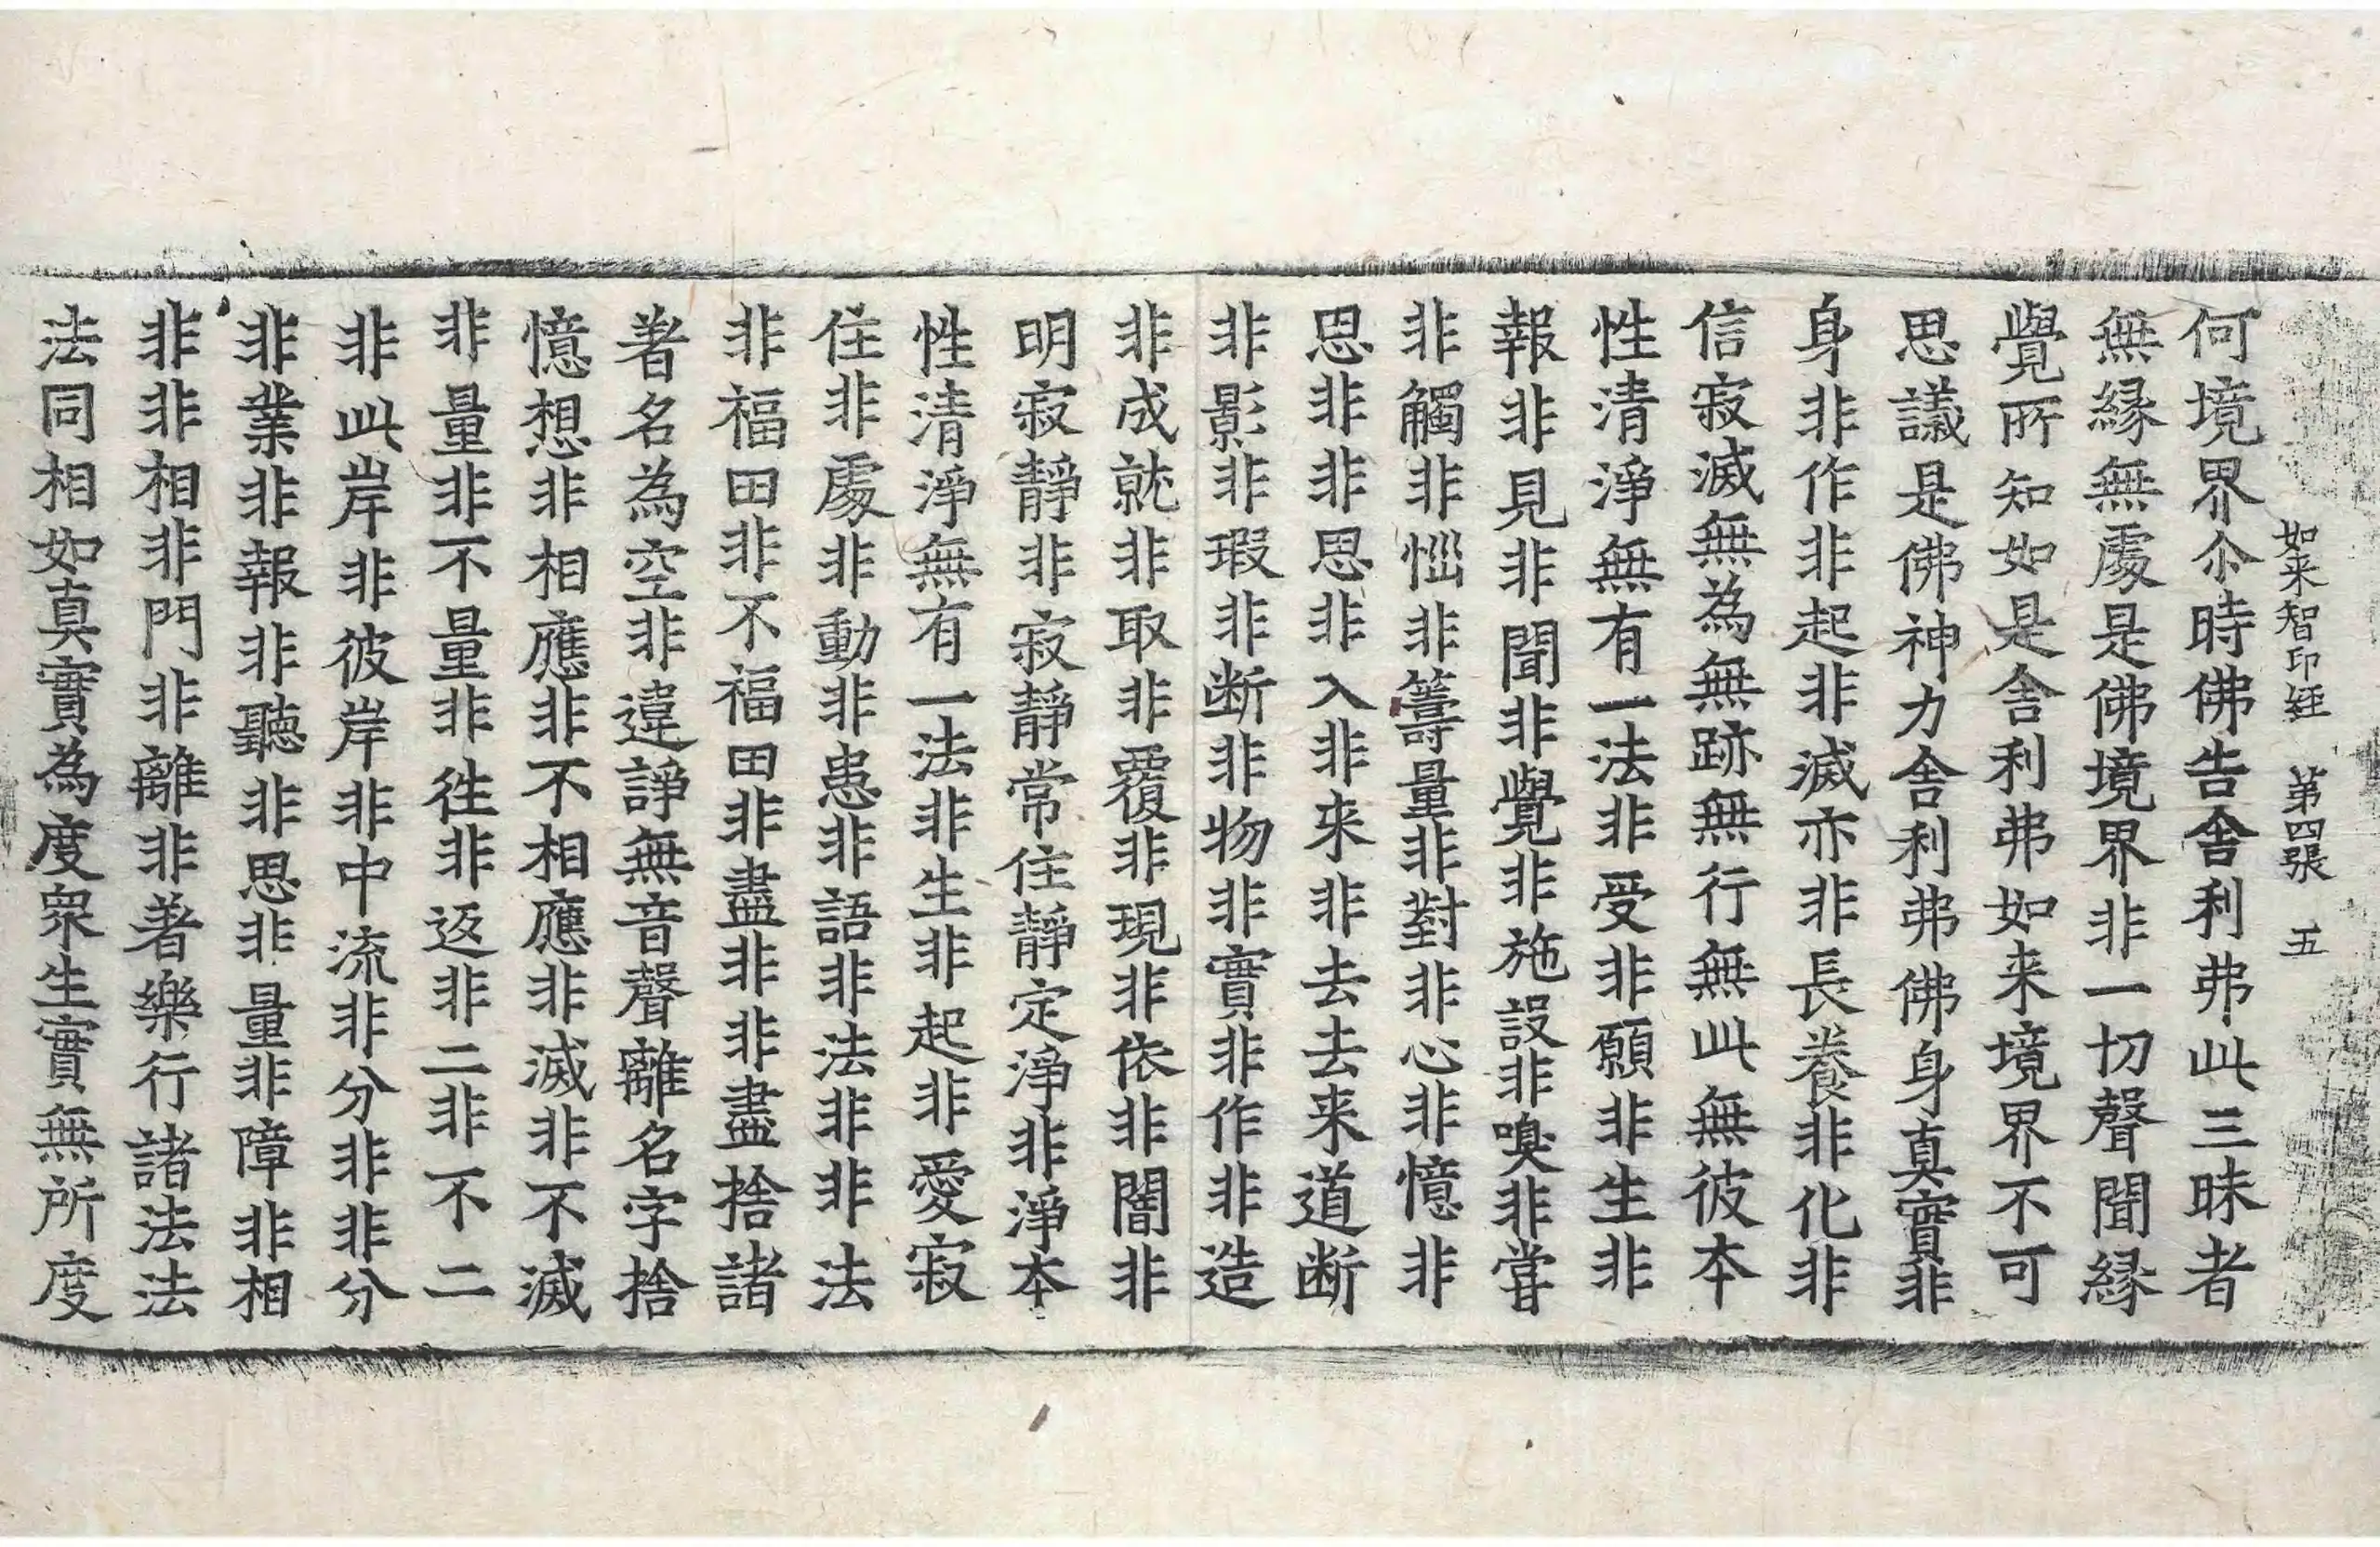 如来智印経 第四張 五
何境界尒時佛告舎利弗此三昧者
無縁無處是佛境界非一切聲聞縁
覺所知如是舎利弗如来境界不可
思議是佛神力舎利弗佛身真實非
身非作非起非滅亦非長養非化非
信寂滅無為無跡無行無此無彼本
性清淨無有一法非受非願非生非
報非見非聞非覺非施設非嗅非甞
非觸非惱非籌量非對非心非憶非
思非非思非入非来非去去来道断
非影非瑕非断非物非實非作非造
非成就非取非覆非現非依非闇非
明寂靜非寂靜常住靜定淨非淨本
性清淨無有一法非生非起非愛寂
住非處非動非患非語非法非非法
非福田非不福田非盡非非盡捨諸
著名為空非違諍無音聲離名字捨
憶想非相應非不相應非滅非不滅
非量非不量非徃非返非二非不二
非此岸非彼岸非中流非分非非分
非業非報非聽非思非量非障非相
非非相非門非離非著樂行諸法法
法同相如真實為度衆生實無所度